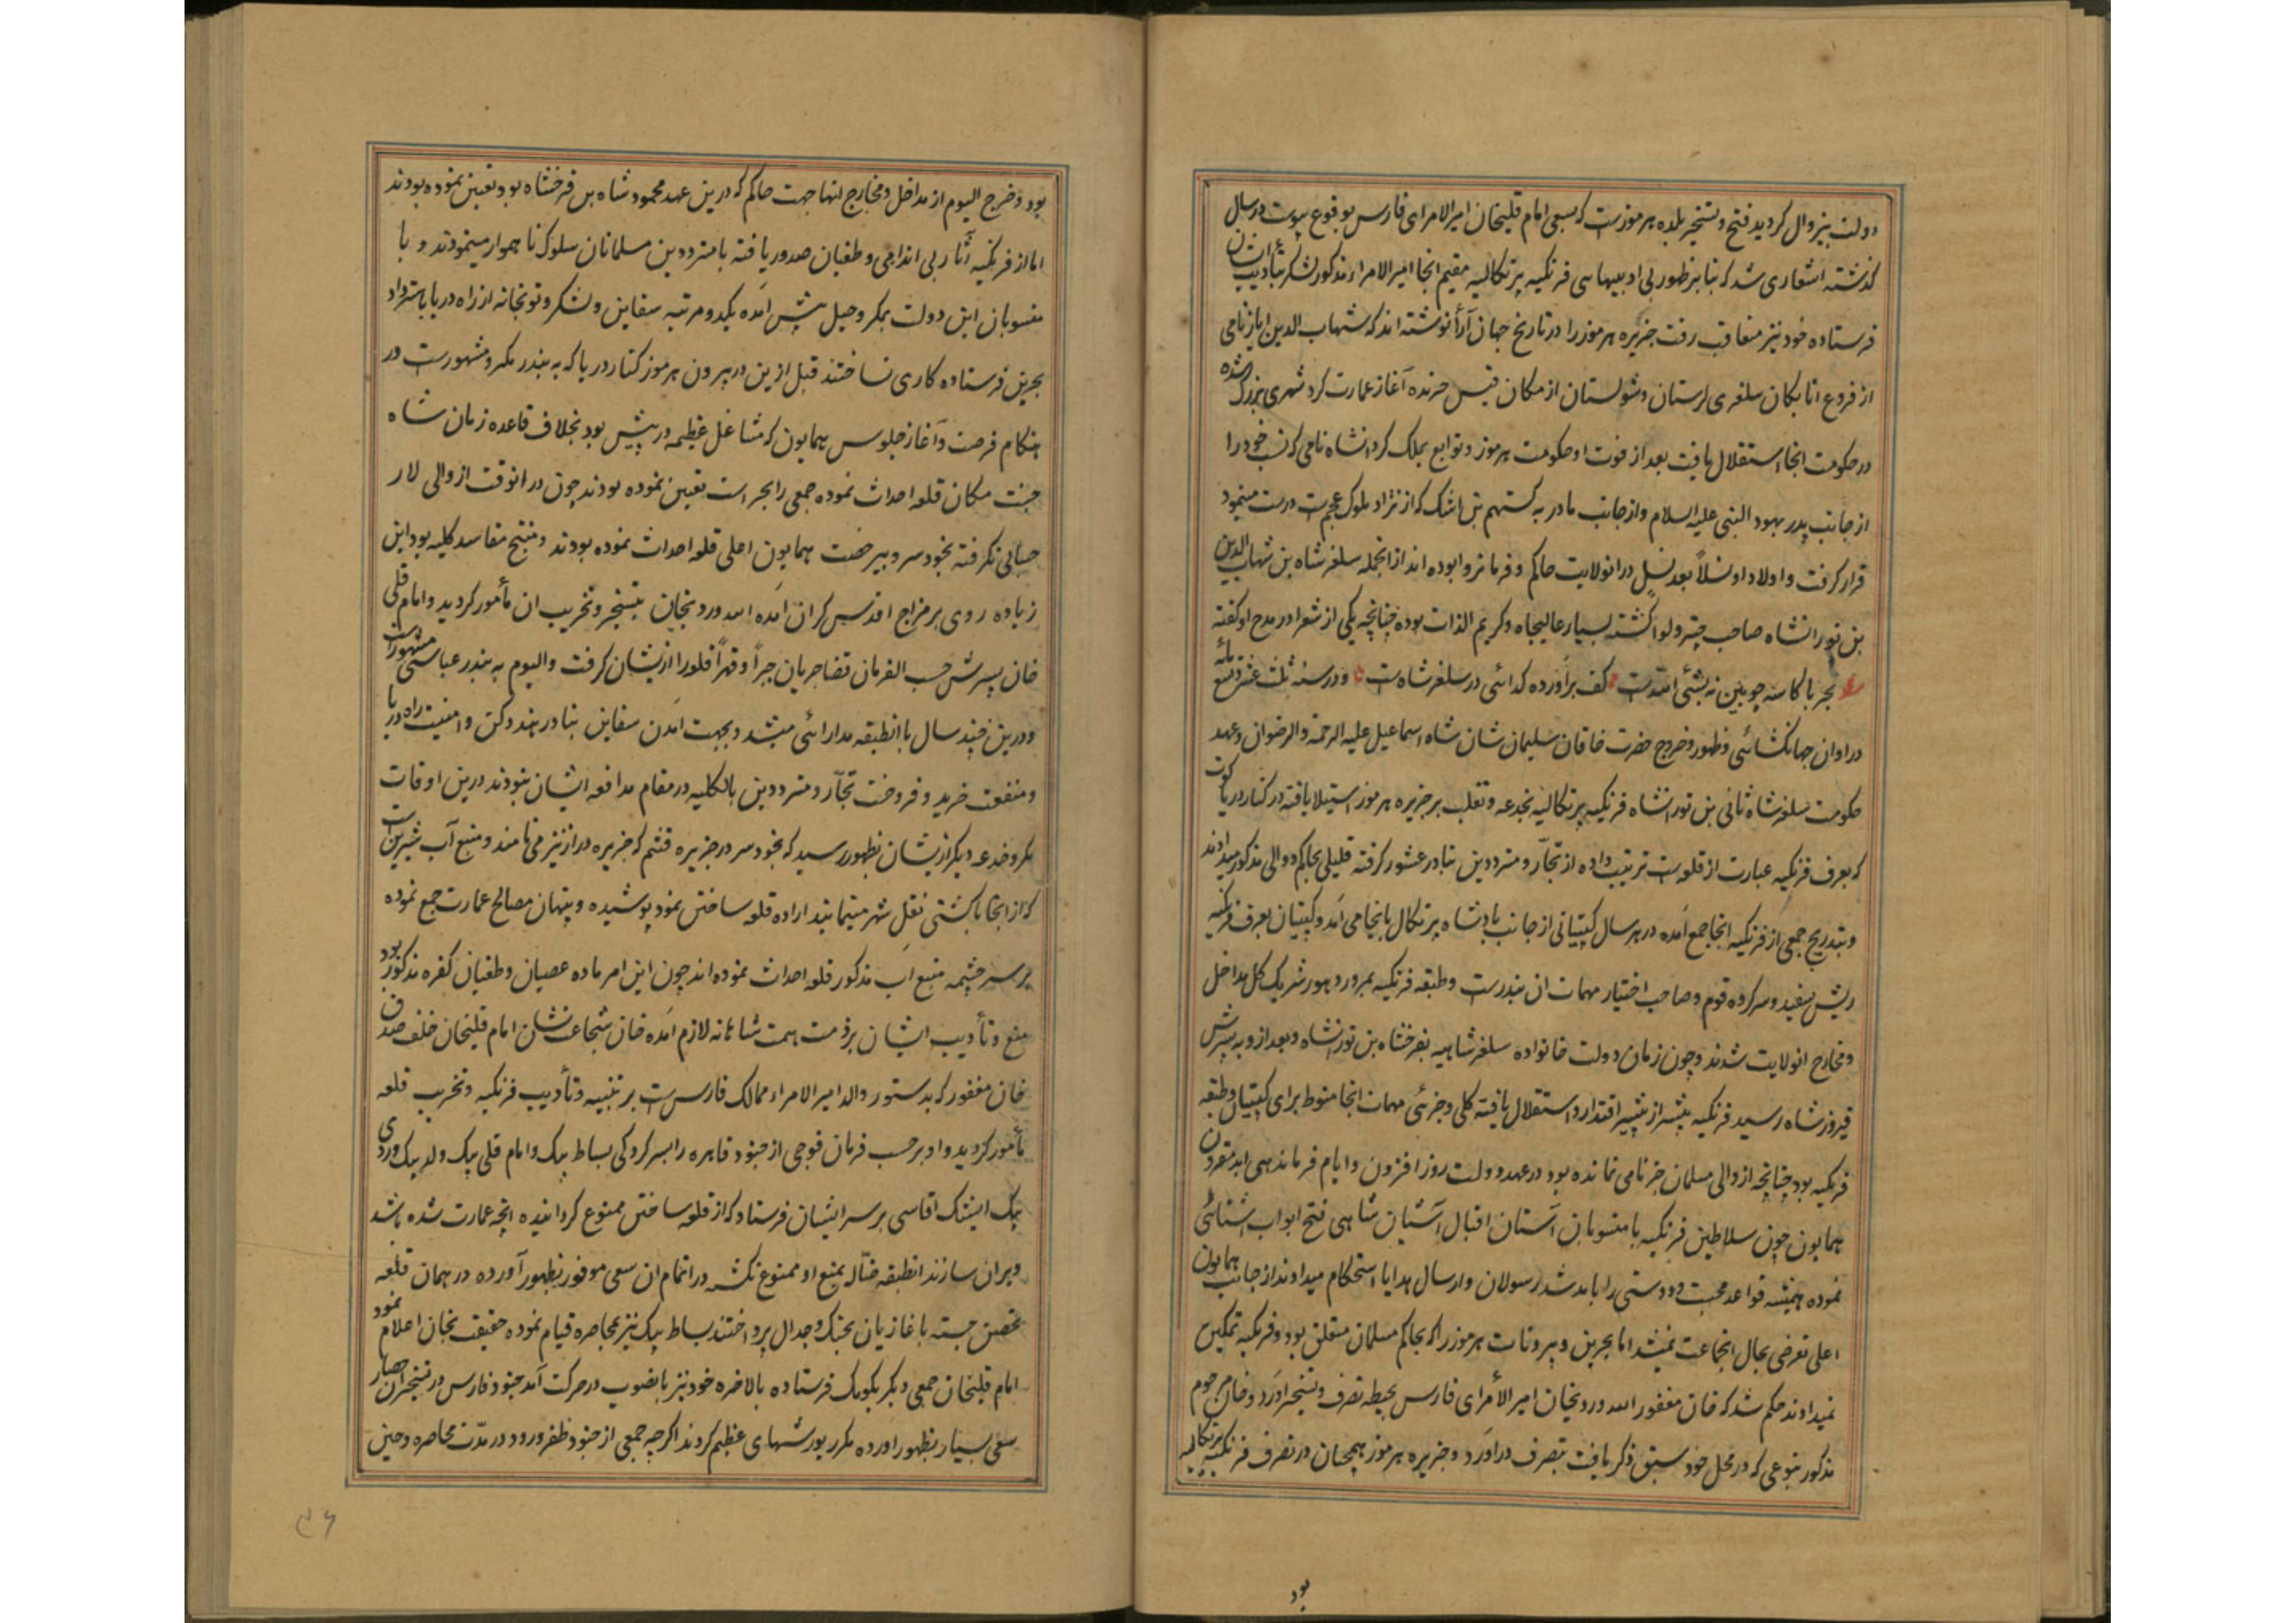 دولت بیزوال کردید فتح و تسخیر بلده هرموزست که بسعی امام قلیخان امیر الامرای فارس بوقوع پیوست در سال
کذشته اشعاری شد که بنا بر ظهور بی ادبیهای فرنکیه پرتکالیه مقیم انجا امیر الامراء مذکور لشکر بتأدیب ایشان
فرستاده خود نیز متعاقب رفت جزیره هرموز را در تاریخ جهان آرأ نوشته اند که شهاب الدین ایاز نامی
از فروع اتابکان سلغری لرستان و شولستان از مکان قیس خزنده آغاز عمارت کرد شهری بزرک شده
در حکومت انجا استقلال یافت بعد از فوت او حکومت هرموز و توابع بملک کردانشاه نامی که نسب خود را
از جانب پدر بهود النبی علیه السلام و از جانب مادر به کستهم بن اشک که از نژاد ملوک عجمست درست مینمود
قرار کرفت و اولاد او نسلاً بعد نسل در انولایت حاکم و فرمانروا بوده اند از انجمله سلغر شاه بن شهاب الدین
بن تورانشاه صاحب چتر و لوا کشته بسیار عالیجاه و کریم الذات بوده چنانچه یکی از شعرا در مدح او کفته
بحر با کاسه چوبین نه بشئی اللّه است کف برآورده کدائی در سلغر شاه است و در سنه ثلث عشر و تسع مائه
در اوان جهانکشائی و ظهور و خروج حضرت خاقان سلیمان شان شاه اسماعیل علیه الرحمة و الرضوان و عهد
حکومت سلغر شاه ثانی بن تورانشاه فرنکیه پرتکالیه بخدعه و تغلب بر جزیره هرموز استیلا یافته در کنار دریا کوت
که بعرف فرنکیه عبارت از قلعه است ترتیب داده از تجّار و مترددین بنادر عشور کرفته قلیلی بحاکم و والی مذکور میدادند
و بتدریج جمعی از فرنکیه انجا جمع آمده در هر سال کپیتانی از جانب پادشاه پرتکال بانجا می آمد و کپیتان بعرف فرنکیه
ریش سفید و سر کرده قوم و صاحب اختیار مهمات ان بندرست و طبقه فرنکیه بمرور دهور شریک کل مداخل
و مخارج انولایت شدند و چون زمان دولت خانواده سلغر شاهیه بفرخشاه بن تورانشاه و بعد از و به پسرش
فیروز شاه رسید فرنکیه بیشتر از پیشتر اقتدار و استقلال یافته کلی و جزئی مهمات انجا منوط برای کپیتان و طبقه
فرنکیه بود چنانچه از والی مسلمان جز نامی نمانده بود در عهد دولت روز افزون و ایام فرماندهی ابد مقرون
همایون چون سلاطین فرنکیه با منسوبان آستان اقبال آشیان شاهی فتح ابواب اشنائی
نموده همیشه قواعد محبت و دوستی را بامد شد رسولان و ارسال هدایا استحکام میدادند از جانب همایون
اعلی تعرضی بحال انجماعت نمیشد اما بحرین و بیرونات هرموز را که بحاکم مسلمان متعلق بود و فرنکیه تمکین
نمیدادند حکم شد که خان مغفور الله وردیخان امیر الأمرای فارس بحیطه تصرف و تسخیر اورد و خان مرحوم
مذکور بنوعی که در محل خود سبق ذکر یافت بتصرف در آورد و جزیره هرموز همچنان در تصرف فرنکییه پرتکالیه
بود
بود و خرج الیوم از مداخل و مخارج انها جهت حاکم که درین عهد محمود شاه بن فرخشاه بود تعین نموده بودند
اما از فرنکیه آثار بی اندامی و طغیان صدور یافته با مترددین مسلمانان سلوک ناهموار مینمودند و با
منسوبان این دولت بمکر و حیل پیش آمده یکدو مرتبه سفاین و لشکر و توبخانه از راه دریا باسترداد
بحرین فرستاده کاری نساختند قبل ازین در بیرون هرموز کنار دریا که به بندر کمرو مشهورست در
هنکام فرصت و آغاز جلوس همایون که مشاغل عظیمه در پیش بود بخلاف قاعده زمان شاه
جنت مکان قلعه احداث نموده جمعی را بحراست تعین نموده بودند چون در انوقت از والی لار
حسابی نکرفته بخود سر و بیرخصت همایون اعلی قلعه احداث نموده بودند و منتج مفاسد کلیه بود این
زیاده روی بر مزاج اقدس کران آمده الله وردیخان بتسخیر و تخریب ان مأمور کردید و امام قلی
خان پسرش حسب الفرمان قضا جریان جبراً و قهراً قلعه را ازیشان کرفت و الیوم به بندر عباسی مشهور است
و درین چند سال با انطبقه مدارائی میشد و بجهت آمدن سفاین بنادر هند و دکن و امنیت راه دریا
و منفعت خرید و فروخت تجّار و مترددین بالکلیه در مقام مدافعه ایشان نبودند درین اوقات
مکر و خدعه دیکر ازیشان بظهور رسید که بخود سر در جزیره قشم که جزیره دراز نیز می نامند و منبع آب شیرین است
که از انجا با کشتی نقل شهر مینمایند اراده قلعه ساختن نمود پوشیده و پنهان مصالح عمارت جمع نموده
بر سر چشمه منبع آب مذکور قلعه احداث نموده اند چون این امر ماده عصیان و طغیان کفره مذکور بود
منع و تأدیب ایشان بر ذمت همت شاهانه لازم آمده خان شجاعت نشان امام قلیخان خلف صدق
خان مغفور که بدستور والد امیر الامراء ممالک فارس است بر تنبیه و تأدیب فرنکیه و تخریب قلعه
مأمور کردید و او بر حسب فرمان فوجی از جنود قاهره را بسر کردکی بساط بیک و امام قلی بیک ولد بیک وردی
بیک ایشک اقاسی بر سر ایشان فرستاد که از قلعه ساختن ممنوع کردانیده انچه عمارت شده باشد
ویران سازند انطبقه ضالّه بمنع او ممنوع نکشته در اتمام ان سعی موفور بظهور آورده در همان قلعه
تحصن جسته با غازیان بجنک و جدال پرداختند بساط بیک نیز بمحاصره قیام نموده حقیقت بخان اعلام نمود
امام قلیخان جمعی دیکر بکومک فرستاده بالاخره خود نیز بانصوب در حرکت آمد جنود فارس در تسخیر ان حصار
سعی بسیار بظهور اورده مکرر یورشهای عظیم کردند اکرچه جمعی از جنود ظفر ورود در مدّت محاصره و حین